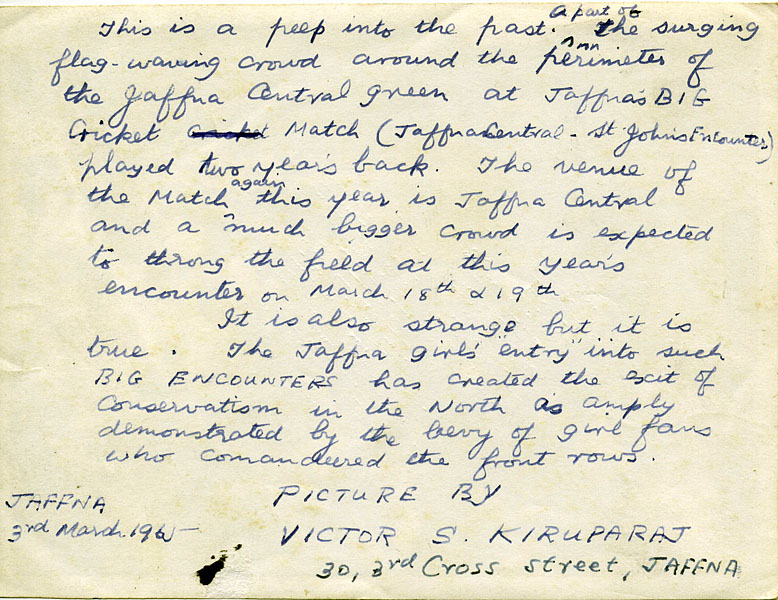 This is a peep into the past. A part of the surging
flag-waving crowd around the perimeter of
the Jaffna Central green at Jaffna's BIG
Cricket Match (Jaffna Central - St. John's Encounter)
played two year's back. The venue of
the Match again this year is Jaffna Central
and a much bigger crowd is expected
to throng the field at this year's
encounter on March 18th & 19th
It is also strange but it is
true. The Jaffna girls' "entry" into such
BIG ENCOUNTERS has created the exit of
Conservatism in the North as amply
demonstrated by the bevy of girl fans
who comandeered the front rows.
PICTURE BY
JAFFNA
3rd March 1965
VICTOR S. KIRUPARAJ
30, 3rd Cross Street, JAFFNA